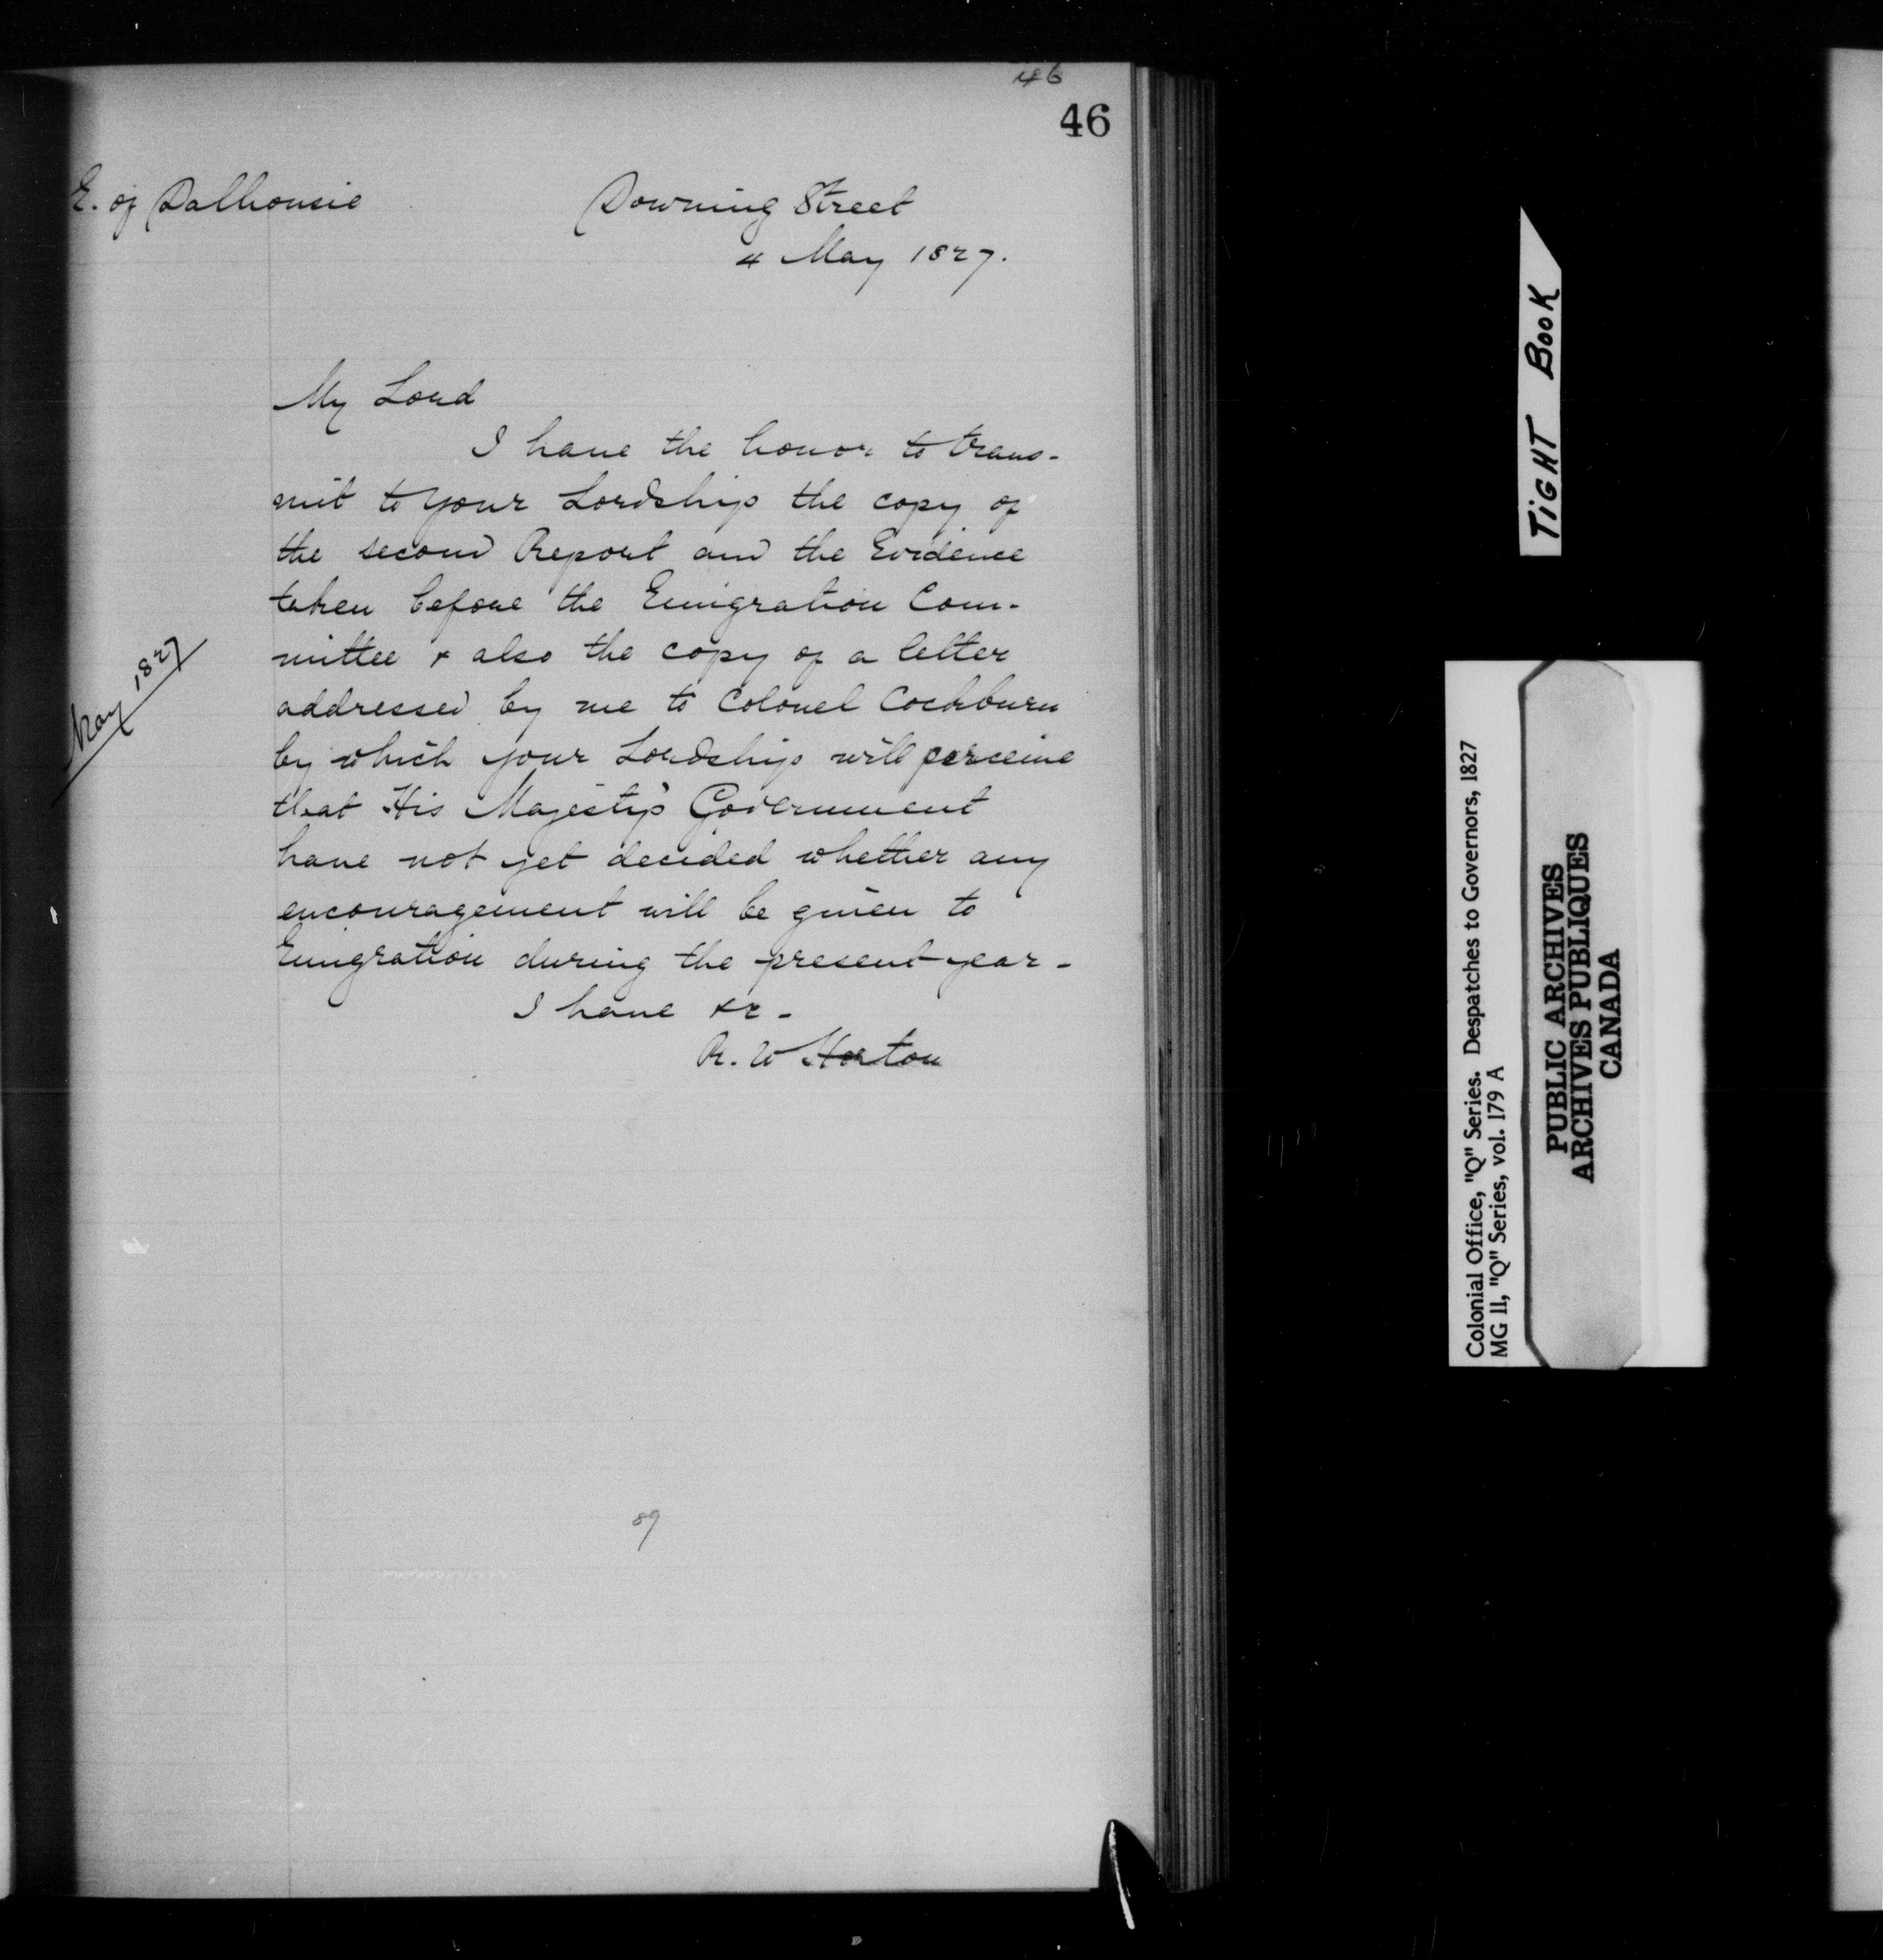 146
46
E. of Dalhousie
Downing Street
4 May 1827.
My Lord
I have the honor to trans-
mit to your Lordship the copy of
the second Report and the Evidence
taken before the Emigration Com-
mittee & also the copy of a letter
addressed by me to Colonel Cockburn
by which your Lordship will perceive
that His Majesty's Government
have not yet decided whether any
encouragement will be given to
Emigration during the present year-
I have &c-
R. W Horton
May 1827
89
TiGHT BooK
Colonial Office, "Q" Series. Despatches to Governors, 1827
MG 11, "Q" Series, vol. 179 A
PUBLIC ARCHIVES
ARCHIVES PUBLIQUES
CANADA